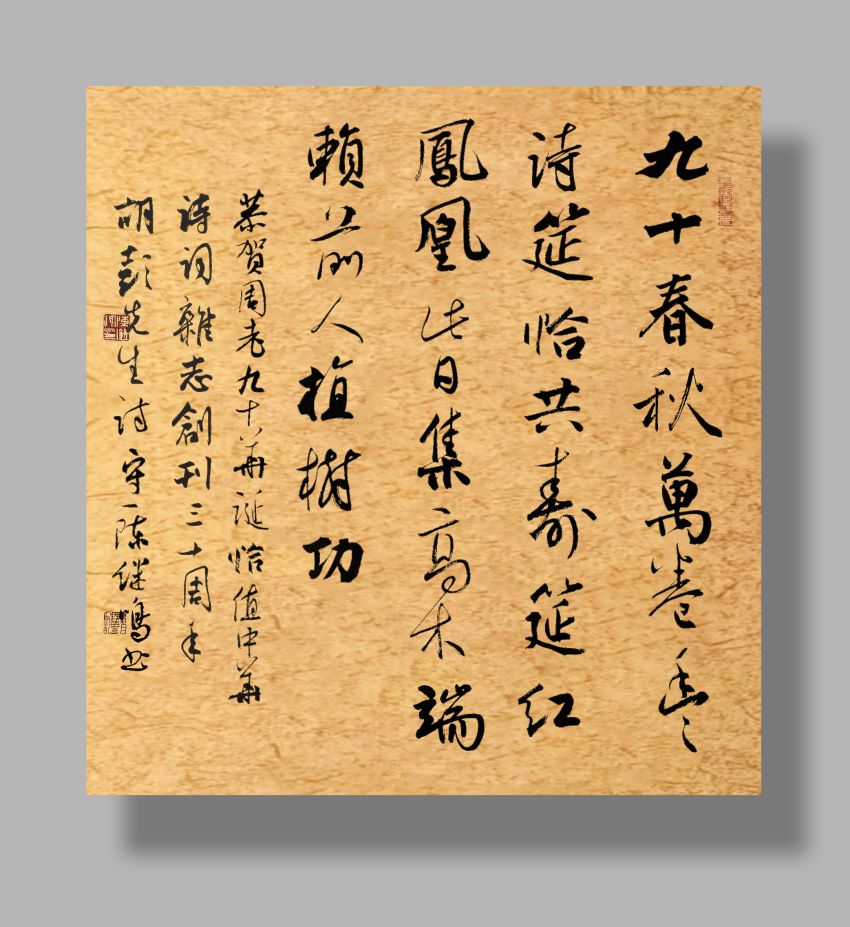 九十春秋萬卷
诗筵恰共寿筵红
鳳凰此日集高木端
賴前人植樹功
恭贺周老九十華诞恰值中華
诗词雜志創刊三十周年
胡彭先生诗守一陈继鸣书